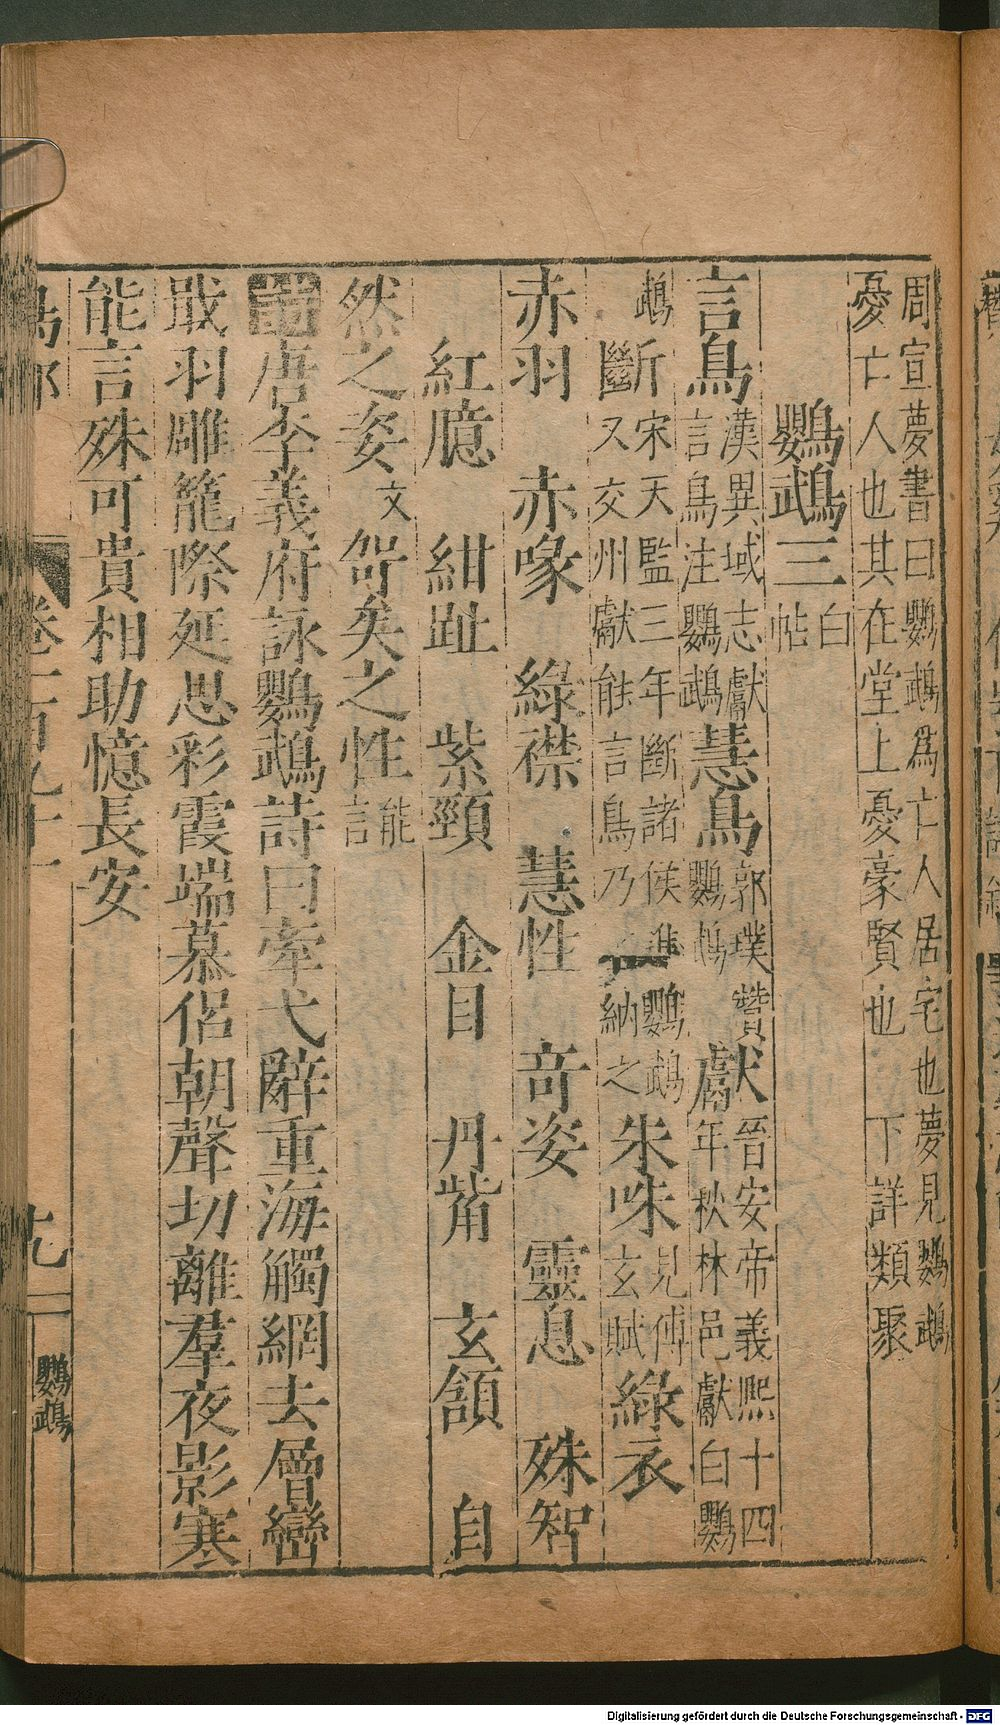 周宣夢書曰鸚鵡為亡人居宅也夢見鸚鵡
憂亡人也其在堂上憂豪賢也　下詳類聚
鸚鵡三白帖
言鳥漢異域志獻言鳥注鸚鵡慧鳥郭璞贊鸚鵡獻晉安帝義熙十四年秋林邑獻白鸚
鵡斷宋天監三年斷諸侯進鸚鵡又交州獻能言鳥乃納之朱咮見傅玄賦綠衣
赤羽　赤喙　綠襟　慧性　奇姿　靈息　殊智
紅臆　紺趾　紫頸　金目　丹觜　玄頷　自
然之姿文　哿矣之性能言
唐李義府詠鸚鵡詩曰牽弋辭重海觸網去層巒
戢羽雕籠際延思彩霞端慕侶朝聲切離羣夜影寒
能言殊可貴相助憶長安
鳥部
卷二百九十一
十九
鸚鵡
Digitalisierung gefördert durch die Deutsche Forschungsgemeinschaft - DFG